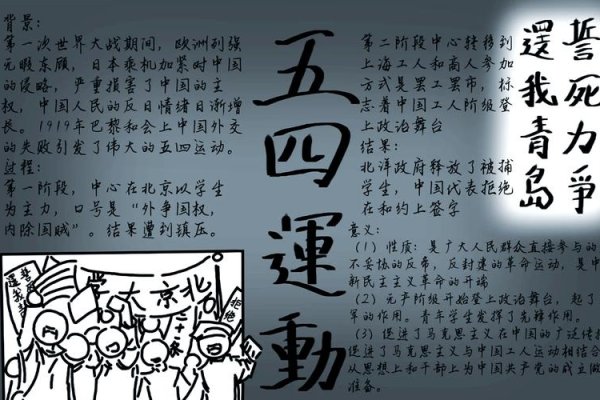 背景:
第一次世界大战期间，欧洲列强
无暇东顾，日本乘机加紧对中国
的侵略，严重损害了中国的主
权，中国人民的反日情绪日渐增
长。1919年巴黎和会上中国外交
的失败引发了伟大的五四运动。
过程:
第一阶段，中心在北京以学生
为主力，口号是“外争国权，
内除国贼”。结果遭到镇压。
五四運動
第二阶段中心转移到
上海工人和商人参加
方式是罢工罢市，标
志着中国工人阶级登
上政治舞台
结果:
北洋政府释放了被捕
学生，中国代表拒绝
在和约上签字
誓死力爭
還我青島
意义:
(1) 性质：是广大人民群众直接参与的
不妥协的反帝，反封建的革命运动，是中
新民主主义革命的开端
(2) 无产阶级开始登上政治舞台，起了
军的作用。青年学生发挥了先锋作用。
(3) 促进了马克思主义在中国的广泛传
促进了马克思主义与中国工人运动相结合
从思想上和干部上为中国共产党的成立做
准备。
大京北